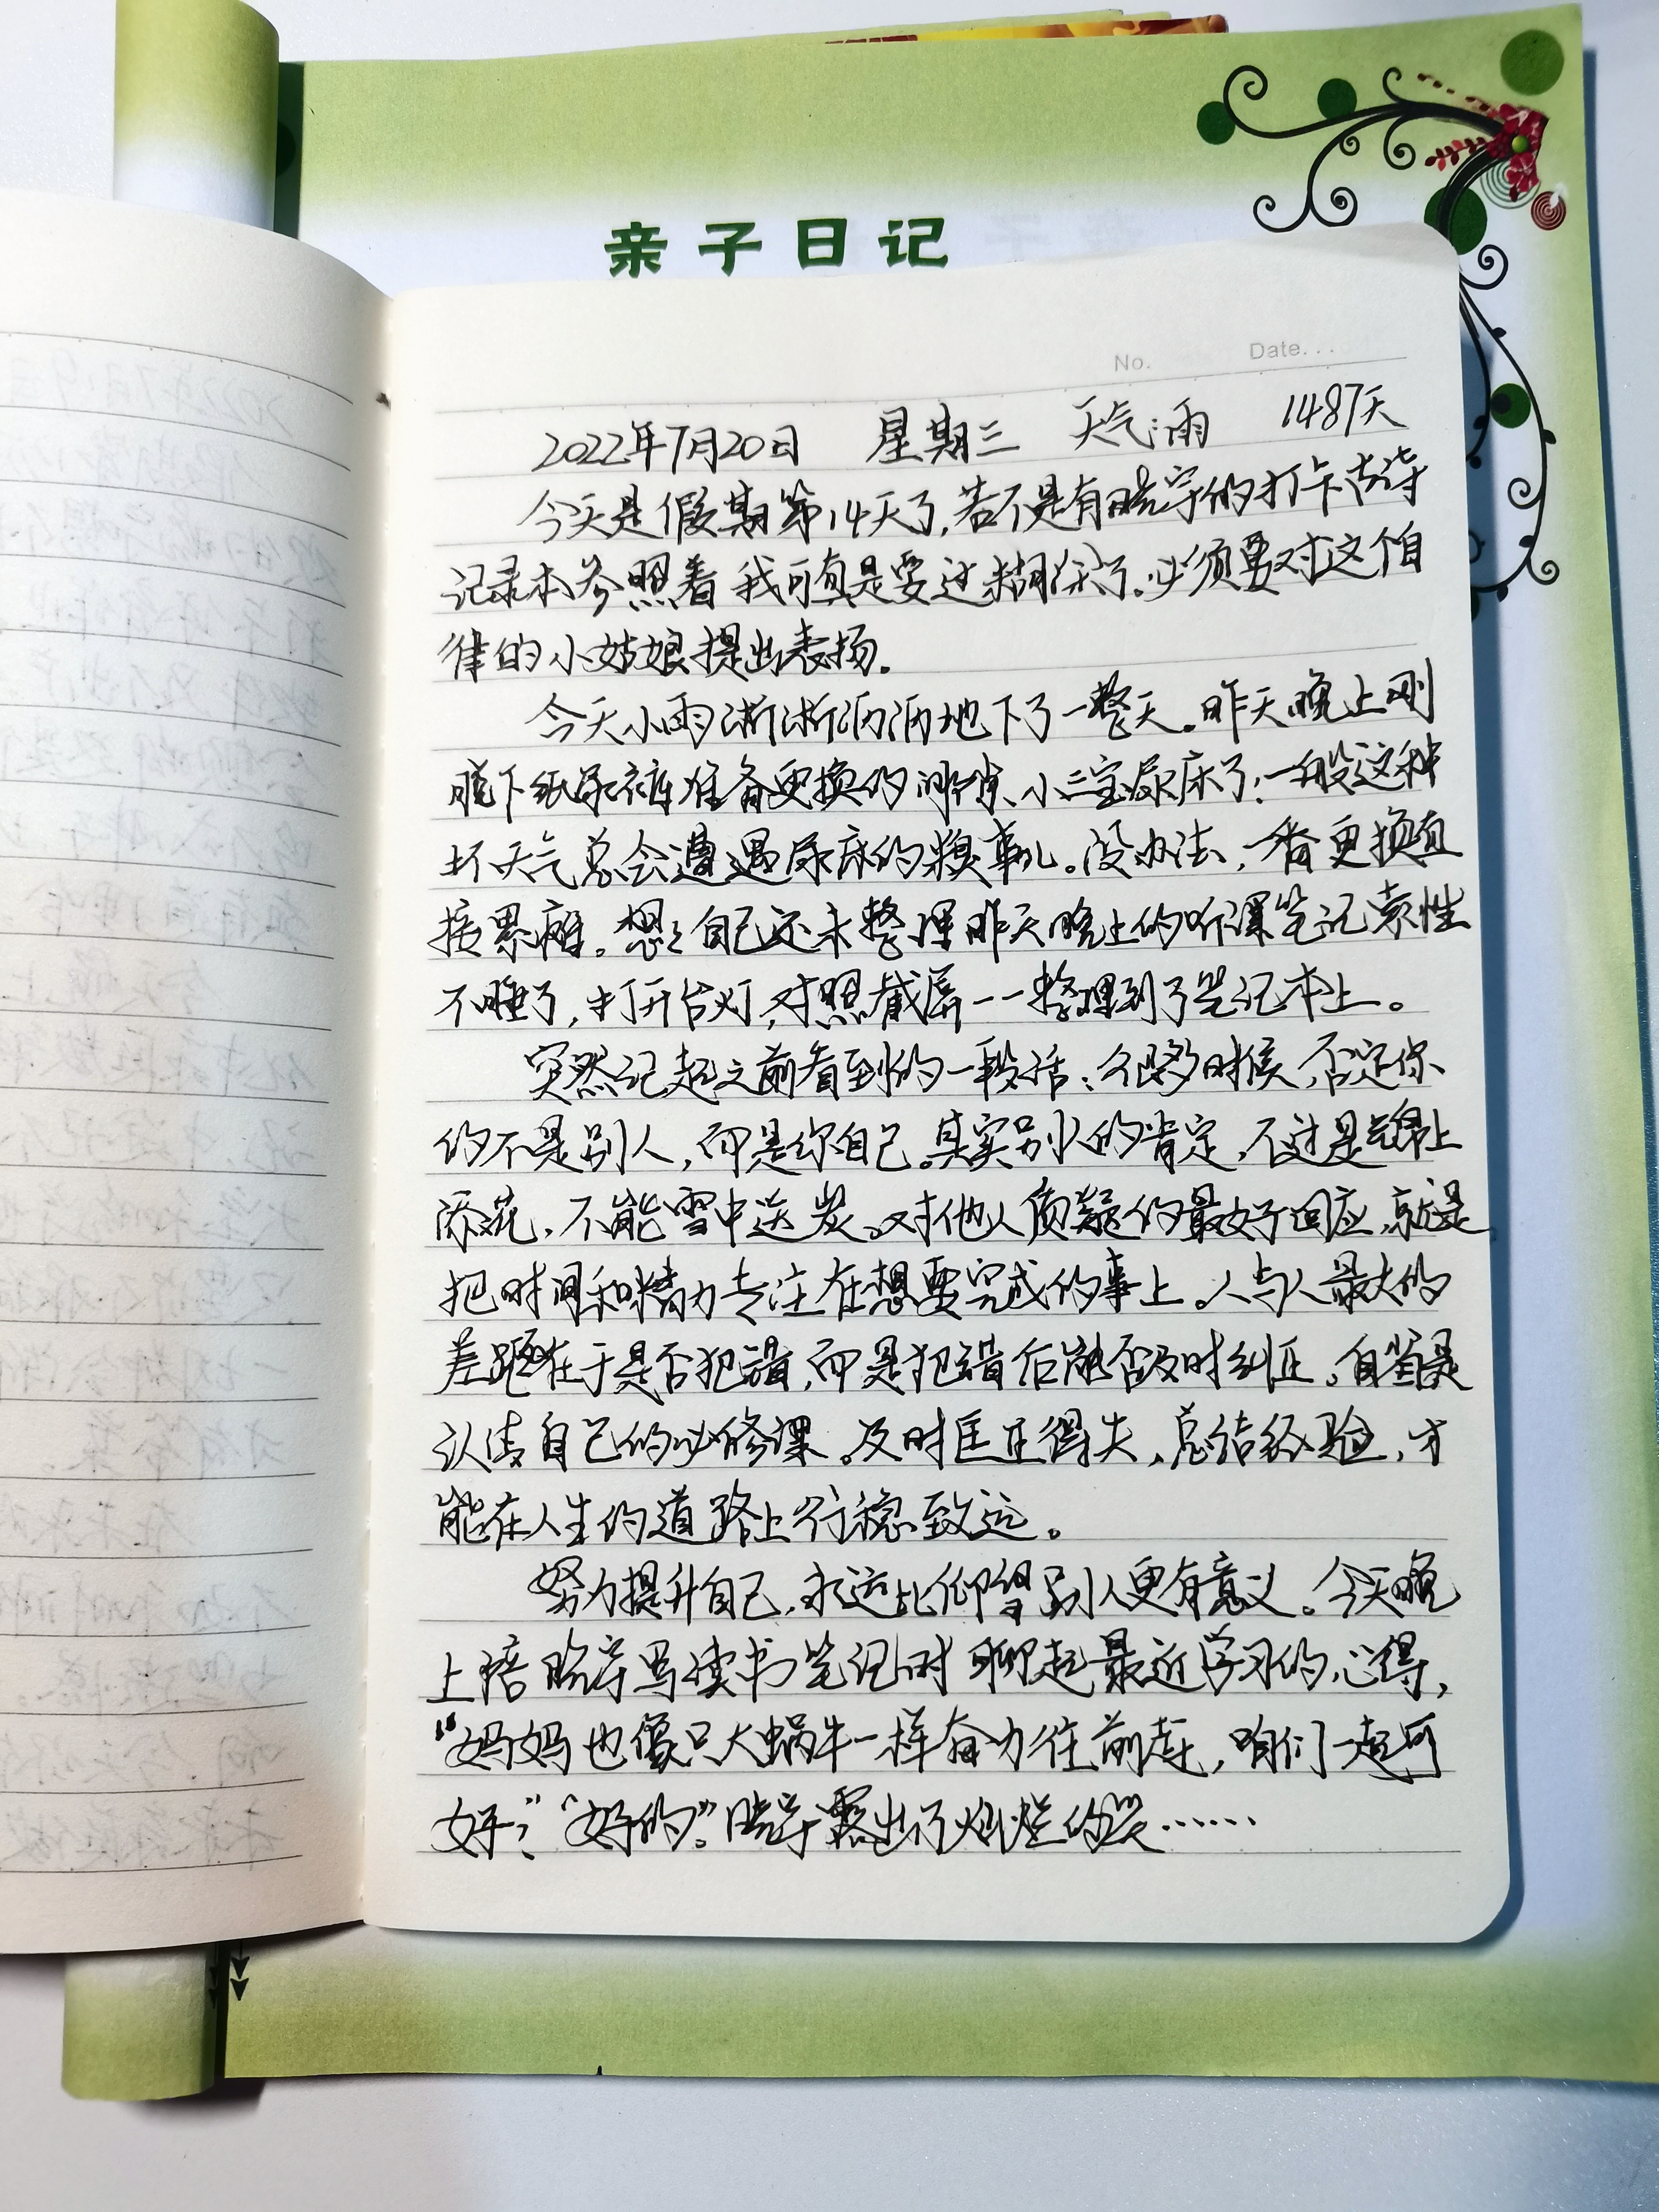 亲子日记
No. Date...
2022年7月20日 星期三 天气:雨 1487天
今天是假期第14天了,若不是有晓宇的打卡古诗
记录本参照着 我可真是要过糊涂了。必须要对这个自
律的小姑娘提出表扬。
今天小雨淅淅沥沥地下了一整天。昨天晚上刚
脱下纸尿裤准备更换的时候、小二宝尿床了;一般这种
坏天气总会遭遇尿床的糗事儿。没办法,一番更换直
接累瘫。想想自己还未整理昨天晚上的听课笔记索性
不睡了,打开台灯,对照截屏一一整理到了笔记本上。
突然记起之前看到的一段话:很多时候,否定你
的不是别人,而是你自己。其实别人的肯定,不过是锦上
添花,不能雪中送炭。对他人质疑的最好回应,就是
把时间和精力专注在想要完成的事上。人与人最大的
差距在于是否犯错,而是犯错后能否及时纠正。自省是
认清自己的必修课。及时匡正得失,总结经验,才
能在人生的道路上行稳致远。
努力提升自己,永远比仰望别人更有意义。今天晚
上陪晓宇写读书笔记时 聊起最近学习的心得,
“妈妈也像只大蜗牛一样奋力往前走,咱们一起可
好?”“好的”。晓宇露出了灿烂的笑……